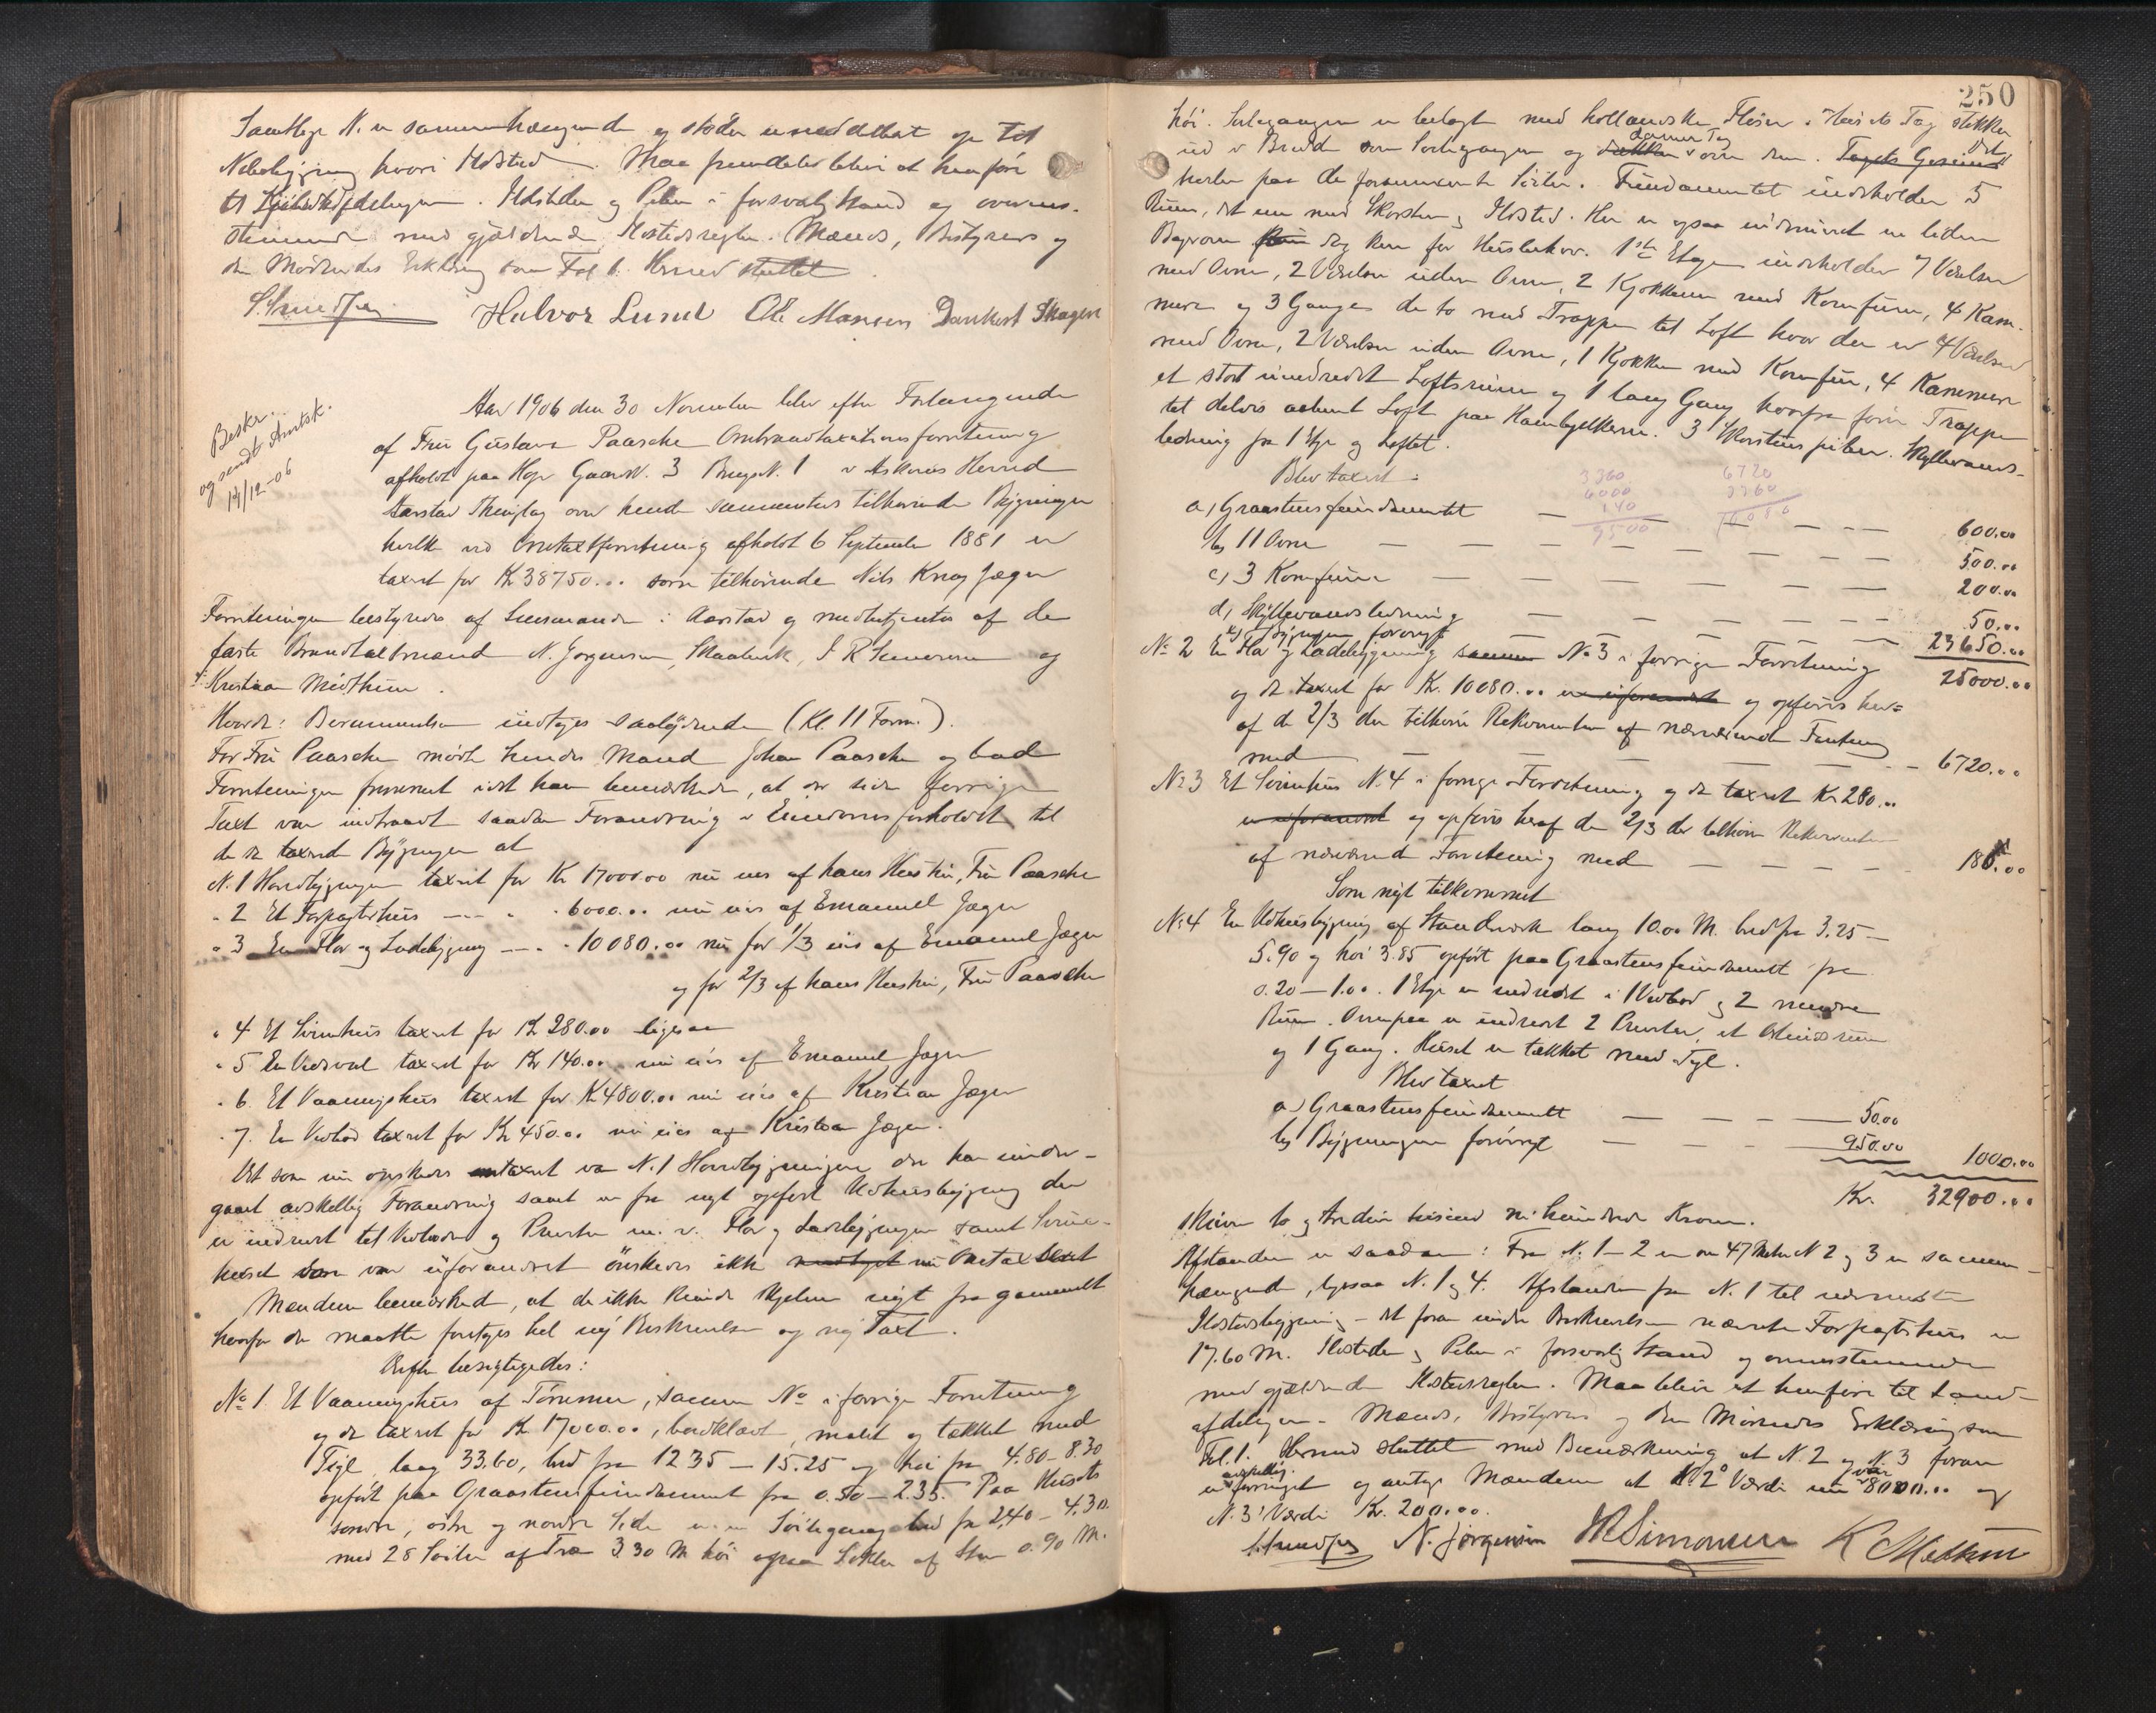 Samtlige N. er sammenhængende og støder umiddelbart op til
Nabobygning hvori Ildsted. Maa fremdeles blive at henføre
til Kjøbstadsafdelingen. Ildsteder og Piber i forsvarlig Stand og overens-
stemmende med gjældende Ildstedsregler. Mænds, Bestyrers og
den Mødendes Erklæring som Fol 1. Hermed sluttet.
Halvor Lund Ole Monsen Dankert Skagen
Beskr.
og sendt Amtsk.
14/12-06
Aar 1906 den 30 November blev efter Forlangende
af Fru Gustava Paasche Ombrandtaxationsforretning
afholdt paa Hop Gaards N. 3 Brugs N. 1 i Askøens Herred
Aarstad Thinglag over hende sammesteds tilhørende Bygninger
hvilke ved Omtaxtforretning afholdt 6 September 1881 er
taxeret for Kr 38750.00 som tilhørende Nils Krag Jæger
Forretningen bestyredes af Lensmanden i Aarstad og medbetjentes af de
faste Brandtaxtmænd N. Jørgensen, Skaalevik, I R Simonsen og
Kristian Midthun.
Hvorda: Berammelsen indtoges saalydende (Kl. 11 Form.).
For Fru Paasche mødte hendes Mand Johan Paasche og bad
Forretningen fremmet idet han bemærkede, at der siden forrige
Taxt var indtraadt saadan Forandring i Eiendomsforholdet til
de da taxerede Bygninger at
N. 1 Hovedbygningen taxeret for Kr 17000.00 nu eies af hans Hustru, Fru Paasche
" 2 Et Forpagterhus — " 6000.00 nu eies af Emanuel Jæger
" 3 En Flor og Ladebygning — " 10080.00 nu for 1/3 eies af Emanuel Jæger
og for 2/3 af hans Hustru, Fru Paasche
" 4 Et Svinehus taxeret for Kr 280.00 ligesaa
" 5 En Vedsval taxeret for Kr 140.00 nu eies af Emanuel Jæger
" 6. Et Vaaningshus taxeret for Kr 4800.00 nu eies af Kristian Jæger
" 7. En Vedbod taxeret for Kr 450.00 nu eies af Kristian Jæger.
Det som nu ønskedes omtaxeret var N. 1 Hovedbygningen der har under-
gaaet adskillig Forandring samt en fra nyt opført Udhusbygning der
er indredet til Vedbod og Priveter m. v. Flor og Ladebygningen samt Svine-
huset som var uforandret ønskedes ikke medtaget nu omtaxeret
Mændene bemærkede, at de ikke kunde skjelne nyt fra gammelt
hvorfor der maatte foretages hel ny Beskrivelse og ny Taxt.
Derefter besigtigedes:
No 1. Et Vaaningshus af Tømmer, samme No i forrige Forretning
og da taxeret for Kr. 17000.00, bordklædt, malet og tækket med
Tegl, lang 33.60, bred fra 12.35 — 15.25 og høi fra 4.80 - 8.30
opført paa Graastensfundament fra 0.50 — 2.35. Paa Husets
søndre, østre og nordre Side er en Søilegang bred fra 2.40 — 4.30.
med 28 Søiler af Træ 3.30 M høi ogsaa Sokler af Sten 0.90 M.
250
høi. Søilegangen er belagt med hollandske Fliser. Husets Tag stikker
ud i Bredde som Søilegangen og danner Tag over den. Tagets Gesims
hviler paa de forannævnte Søiler. Fundamentet indeholder 5
Rum, det ene med Skorsten og Ildsted. Her er ogsaa indmuret en liden
Bagerovn og kun for Husbehov. 1ste Etage indeholder 7 Værelser
med Ovne, 2 Værelser uden Ovn, 2 Kjøkkener med Komfurer, 4 Kam-
mere og 3 Gange de to med Trapper til Loft hvor der er 4 Værelser
med Ovne, 2 Værelser uden Ovne, 1 Kjøkken med Komfur, 4 Kammere
et stort uindredet Loftsrum og 1 lang Gang hvorfra fører Trappe
til delvis aabent Loft paa Hanebjelkerne. 3 Skorstenspiber. Skyllevands-
ledning fra 1 Etge og Loftet.
Blev taxeret:
3360
6000
140
9500
6720
3360
10080
a, Graastensfundamentet — 600.00
b, 11 Ovne — 500.00
c, 3 Komfurer — 200.00
d, Skyllevandsledning — 50.00
e, Bygningen forøvrigt — 23650.00
25000.00
No 2 En Flor og Ladebygning samme No 3 i forrige Forretning
og da taxeret for Kr. 10080.00 er uforandret og opføres her-
af de 2/3 der tilhører Rekvirenten af nærværende Forretning
med — 6720.00
No 3 Et Svinehus N. 4 i forrige Forretning og da taxeret Kr 280.00
er uforandret og opføres heraf de 2/3 der tilhører Rekvirenten
af nærværende Forretning med — 180.00
Som nyt tilkommet
No 4 En Udhusbygning af Standværk lang 10.00 M. bred fra 3.25 —
5.90 og høi 3.85 opført paa Graastensfundament fra
0.20 — 1.00. 1 Etge er indredet i 1 Vedbod og 2 mindre
Rum. Ovenpaa er indredet 2 Priveter, et Avlidsrum
og 1 Gang. Huset er tækket med Tegl.
Blev taxeret
a) Graastensfundamentet — 50.00
b, Bygningen forøvrigt — 950.00 1000.00
Kr. 32900.00
skriver to og treti tusind ni hundrede Kroner.
Afstanden er saadan: Fra N. 1 — 2 er 47 Meter N 2 og 3 er sammen-
hængende, ligesaa N. 1 og 4. Afstanden fra N. 1 til nærmeste
Ildstedsbygning — det foran under Beskrivelsen nævnte Forpagterhus er
17.60 M. Ildsteder og Piber i forsvarlig Stand og overensstemmende
med gjældende Ildstedsregler. Maa blive at henføre til Land-
afdelingen. Mænds, Bestyrers og den Mødendes Erklæring som
Fol. 1. Hermed sluttet med Bemærkning at N. 2 og N. 3 foran
er adskillig forringet og antog Mændene at N. 2's Værdi nu var 8000.00 og
N. 3's Værdi Kr. 200.00.
N. Jørgensen IRSimonsen K Midthun